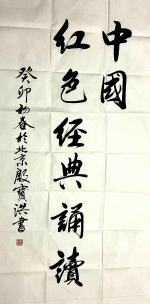 中國
紅色經典誦讀
癸卯初春於北京殷寶洪書